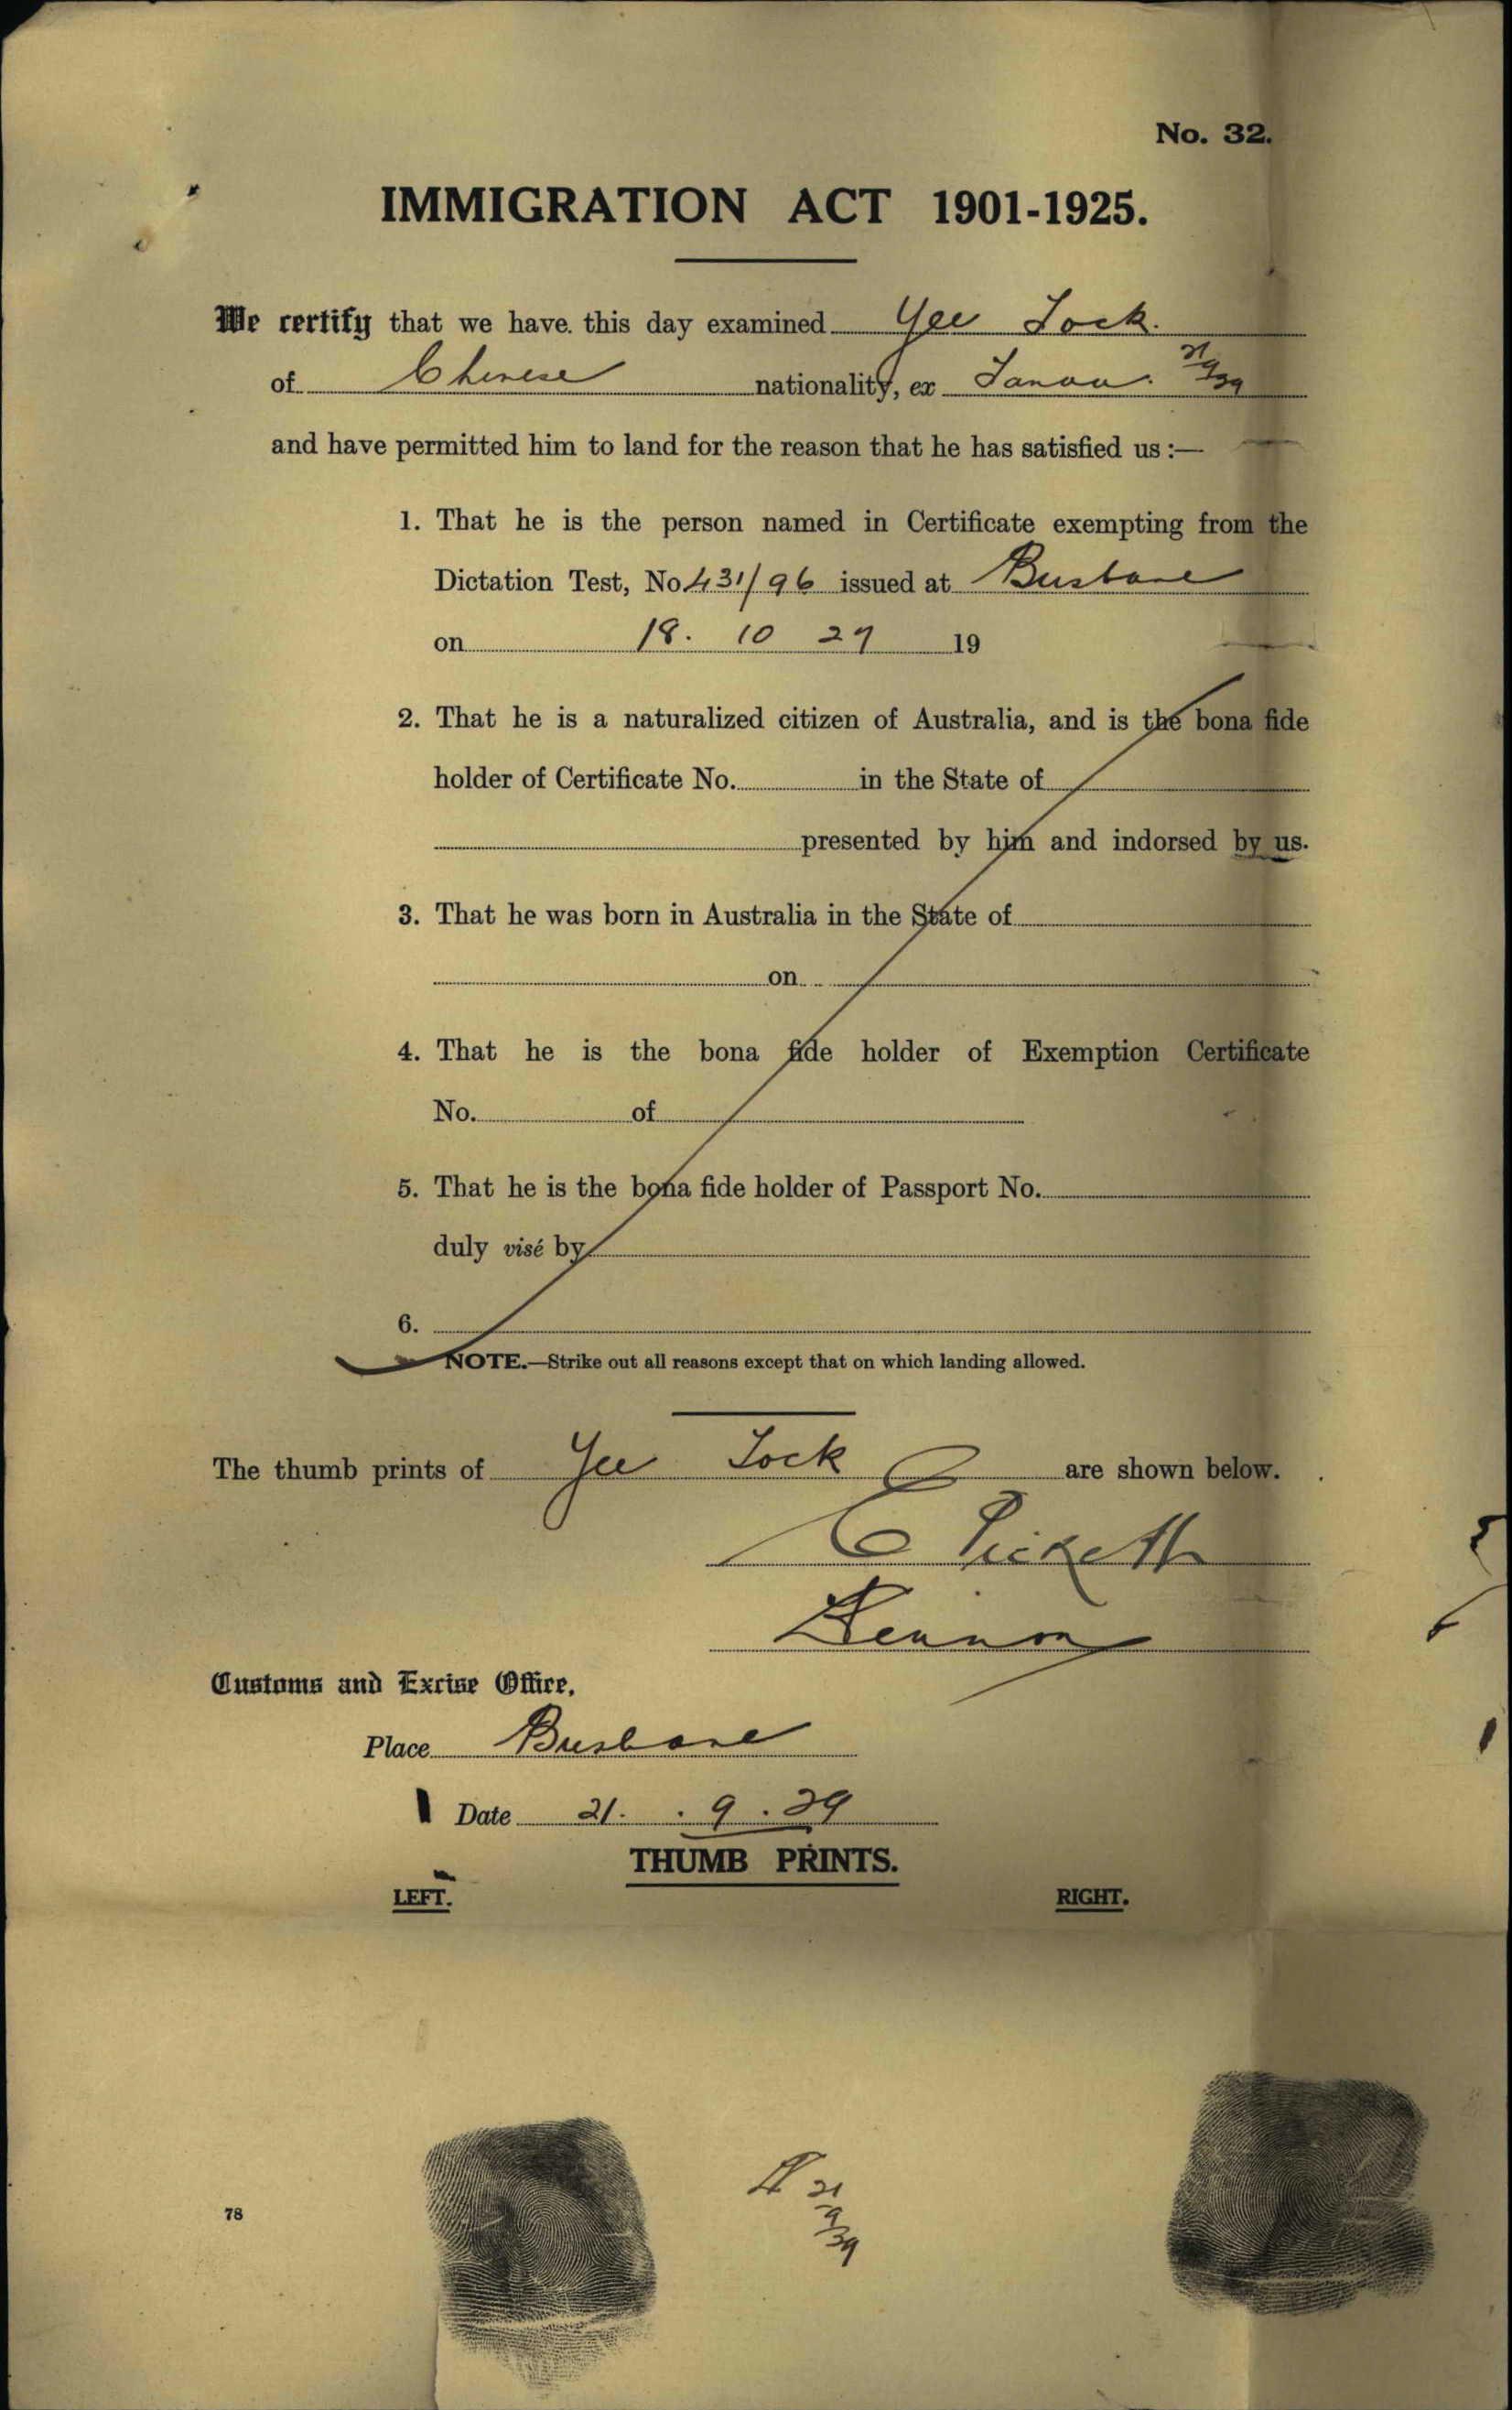 No. 32.
IMMIGRATION ACT 1901-1925.
We certify that we have. this day examined Yee Jock.
of Chinese nationality, ex Tanda. 21/9/39
and have permitted him to land for the reason that he has satisfied us :—
1. That he is the person named in Certificate exempting from the
Dictation Test, No 431/96 issued at Brisbane
on 18. 10 27 19
2. That he is a naturalized citizen of Australia, and is the bona fide
holder of Certificate No. in the State of
presented by him and indorsed by us.
3. That he was born in Australia in the State of
on
4. That he is the bona fide holder of Exemption Certificate
No. of
5. That he is the bona fide holder of Passport No.
duly visé by
6.
NOTE.—Strike out all reasons except that on which landing allowed.
The thumb prints of Yee Jock are shown below.
C Pickett
Customs and Excise Office,
Place Brisbane
Date 21. . 9 . 39
THUMB PRINTS.
LEFT. RIGHT.
21
9
39
78